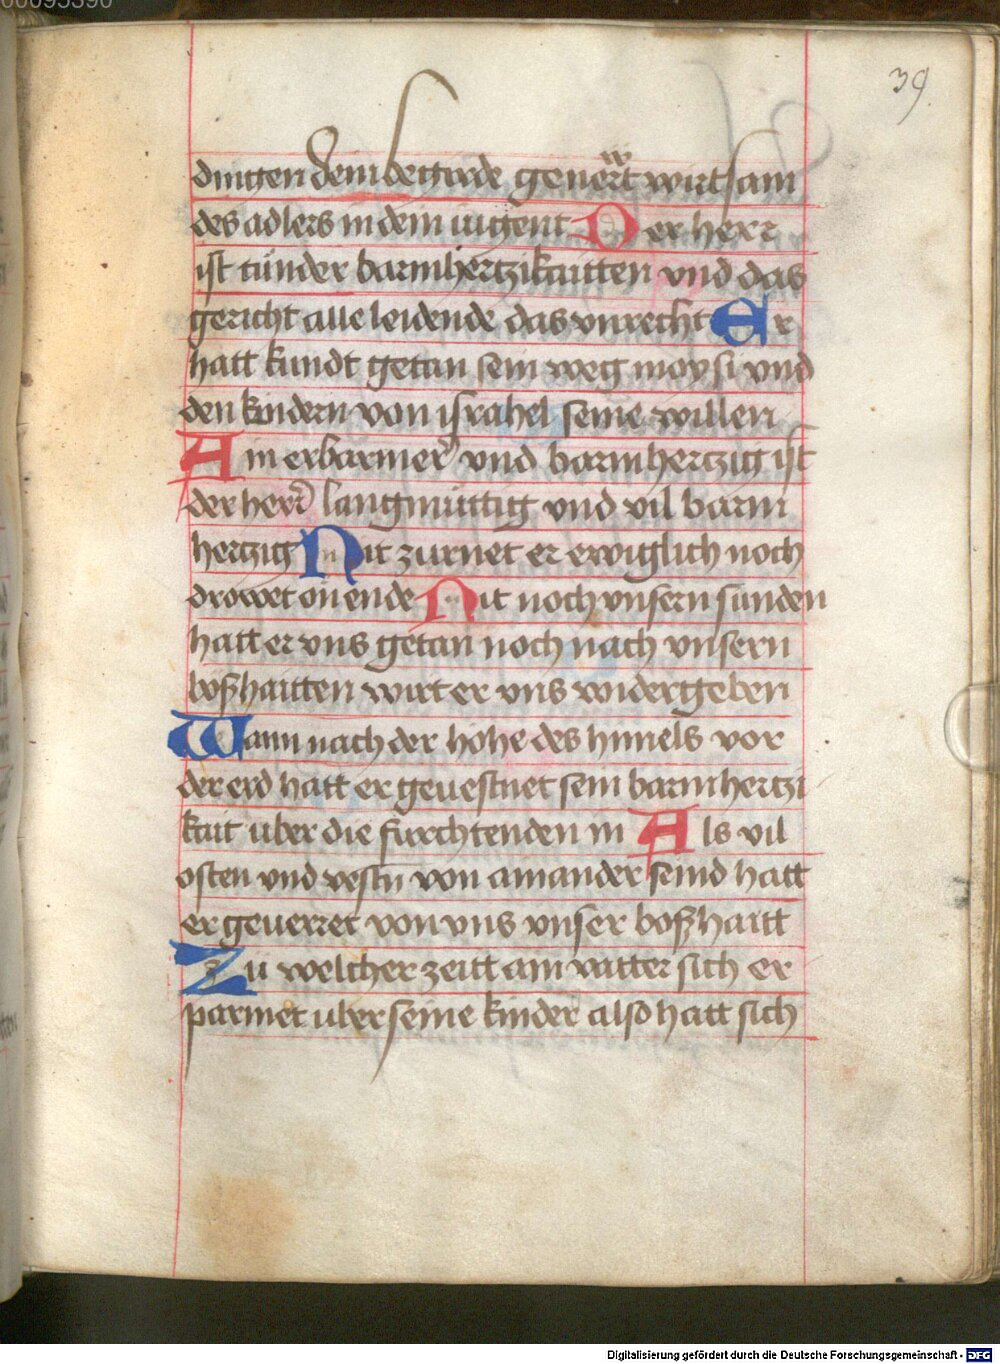 00095390
39
dingen dein begirde geneẅrt wirt sam
des adlers in dein iugent Der herr
ist tunder barmhertzikaitten vnd das
gericht alle leidende das vnrecht Er
hatt kundt getan sein weg moysi vnd
den kindern von israhel seine willen
Ain erbarmer vnd barmhertzig ist
der herr langmuttig vnd vil barm
hertzig Nit zurnet er ewiglich noch
drowet on ende Nit noch vnsern sunden
hatt er vns getan noch nach vnsern
boßhaitten wirt er vns widergeben
Wann nach der hohe des himels vor
der erd hatt er geuestnet sein barmhertzi
kait uber die furchtenden in Als vil
osten vnd vestn von ainander seind hatt
er geuerret von vns vnser boßhaitt
Zu welcher zeitt ain vatter sich er
parmet uber seine kinder also hatt sich
Digitalisierung gefördert durch die Deutsche Forschungsgemeinschaft - DFG